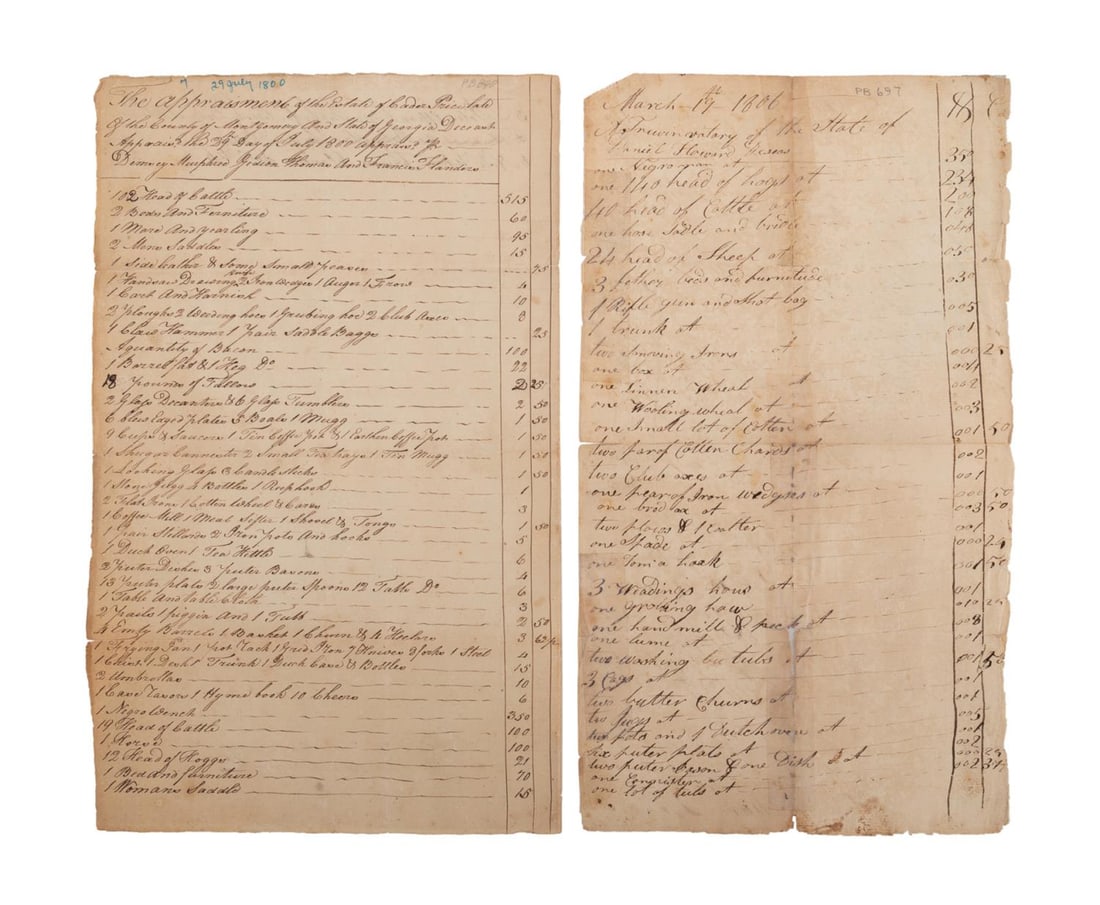 29 July 1800
The appraisment of the Estate of Cader Price late
Of the County of Montgomery And State of Georgia Deceast
Appraised the 29 Day of July 1800 appraisd By
Demsey Gideon Thomas And Francis Flanders
102 Head of Cattle 515
2 Beds And Furniture 60
1 Mare And yearling 95
2 Mens Saddles 15
1 Side leather & Some Small peaces 75
1 Handsaw Drawing knife 2 Iron wedges 1 Auger 1 Frow 4
1 Cart And Harnish 10
2 Ploughs 2 Weeding hoes 1 Grubing hoe 2 Club Axes 8
1 Claw Hammer 1 pair Saddle Baggs 25
A quantity of Bacon 100
1 Barrel & 1 Keg Do 22
18 pounds of Tallow 2 25
2 Glass Decanters & 6 Glass Tumblers 2 50
6 blew Edged plates 5 Boals 1 Mugg 1 50
9 Cups & Saucers 1 Tin Coffe Pot & 1 Earthen Coffe Pot 1 50
1 Shugar Cannester 2 Small Tea trays 1 Tin Mugg 1 50
1 Looking Glass 3 Candle Sticks 1 50
1 Stone Jugg 4 Bottles 1 Reaphook 1
2 Flat Irons 1 Cotten Wheel & Cards 3
1 Coffee Mill 1 Meal Sifter 1 Shovel & Tongs 1 50
1 pair Stillards 2 Iron pots And hooks 5
1 Duch Oven 1 Tea Kittle 6
2 puter Dishes 3 puter Basons 4
13 puter plats 2 large puter Spoons 12 Table Do 6
1 Table And table Cloth 3
2 pails 1 piggin And 1 Tubb 2 50
4 Emty Barrels 1 Basket 1 Churn & 4 3 62
1 Frying Pan 1 pot Rack 1 Grid Iron 7 Knives & forks 1 4
1 Chist 1 Desk 1 Trunk 1 Duch Case & Bottles 15
2 Umbrellas 10
1 Case Razors 1 Hyme book 10 Cheirs 6
1 Negro Wench 350
19 Head of Cattle 100
1 Horse 100
12 Head of Hoggs 21
1 Bed and furniture 70
1 Womans Saddle 15
PB 697
March 19 1806
A Trew of the State of
Daniel Howard
one Negro man at 350
one 110 head of hogs at 234
40 head of Cattle at 200
one hors Sadle and bridle 108
24 head of Sheep at
3 beds and furniture 05
1 Rifle gun and Shot bag 030
1 trunk at 005
two Smoving Irons at 001
one box at 000 25
one Linnen Wheal at 004
one Wooling wheal at 002
one Small lot of Cotten at 003
two par of Cotten Chards at 001 50
two Club axes at 002
one pear of Iron wedges at 001
one brod ax at 000 50
two plows & 1 Coulter 003 50
one Spade at 001
one tom a hack 000 25
3 Weadings hows at 001 50
one groobing haw 010 25
one hand mill & peck at 008
one lume at 001
two washing tubs at 001 50
3 Cags at 001
two butter Churns at 001
two jugs at 005
pots and 1 Dutch oven at 002
six puter plats at
two puter bason & one Dish at 002
one Cannister at
one lot of tubs at